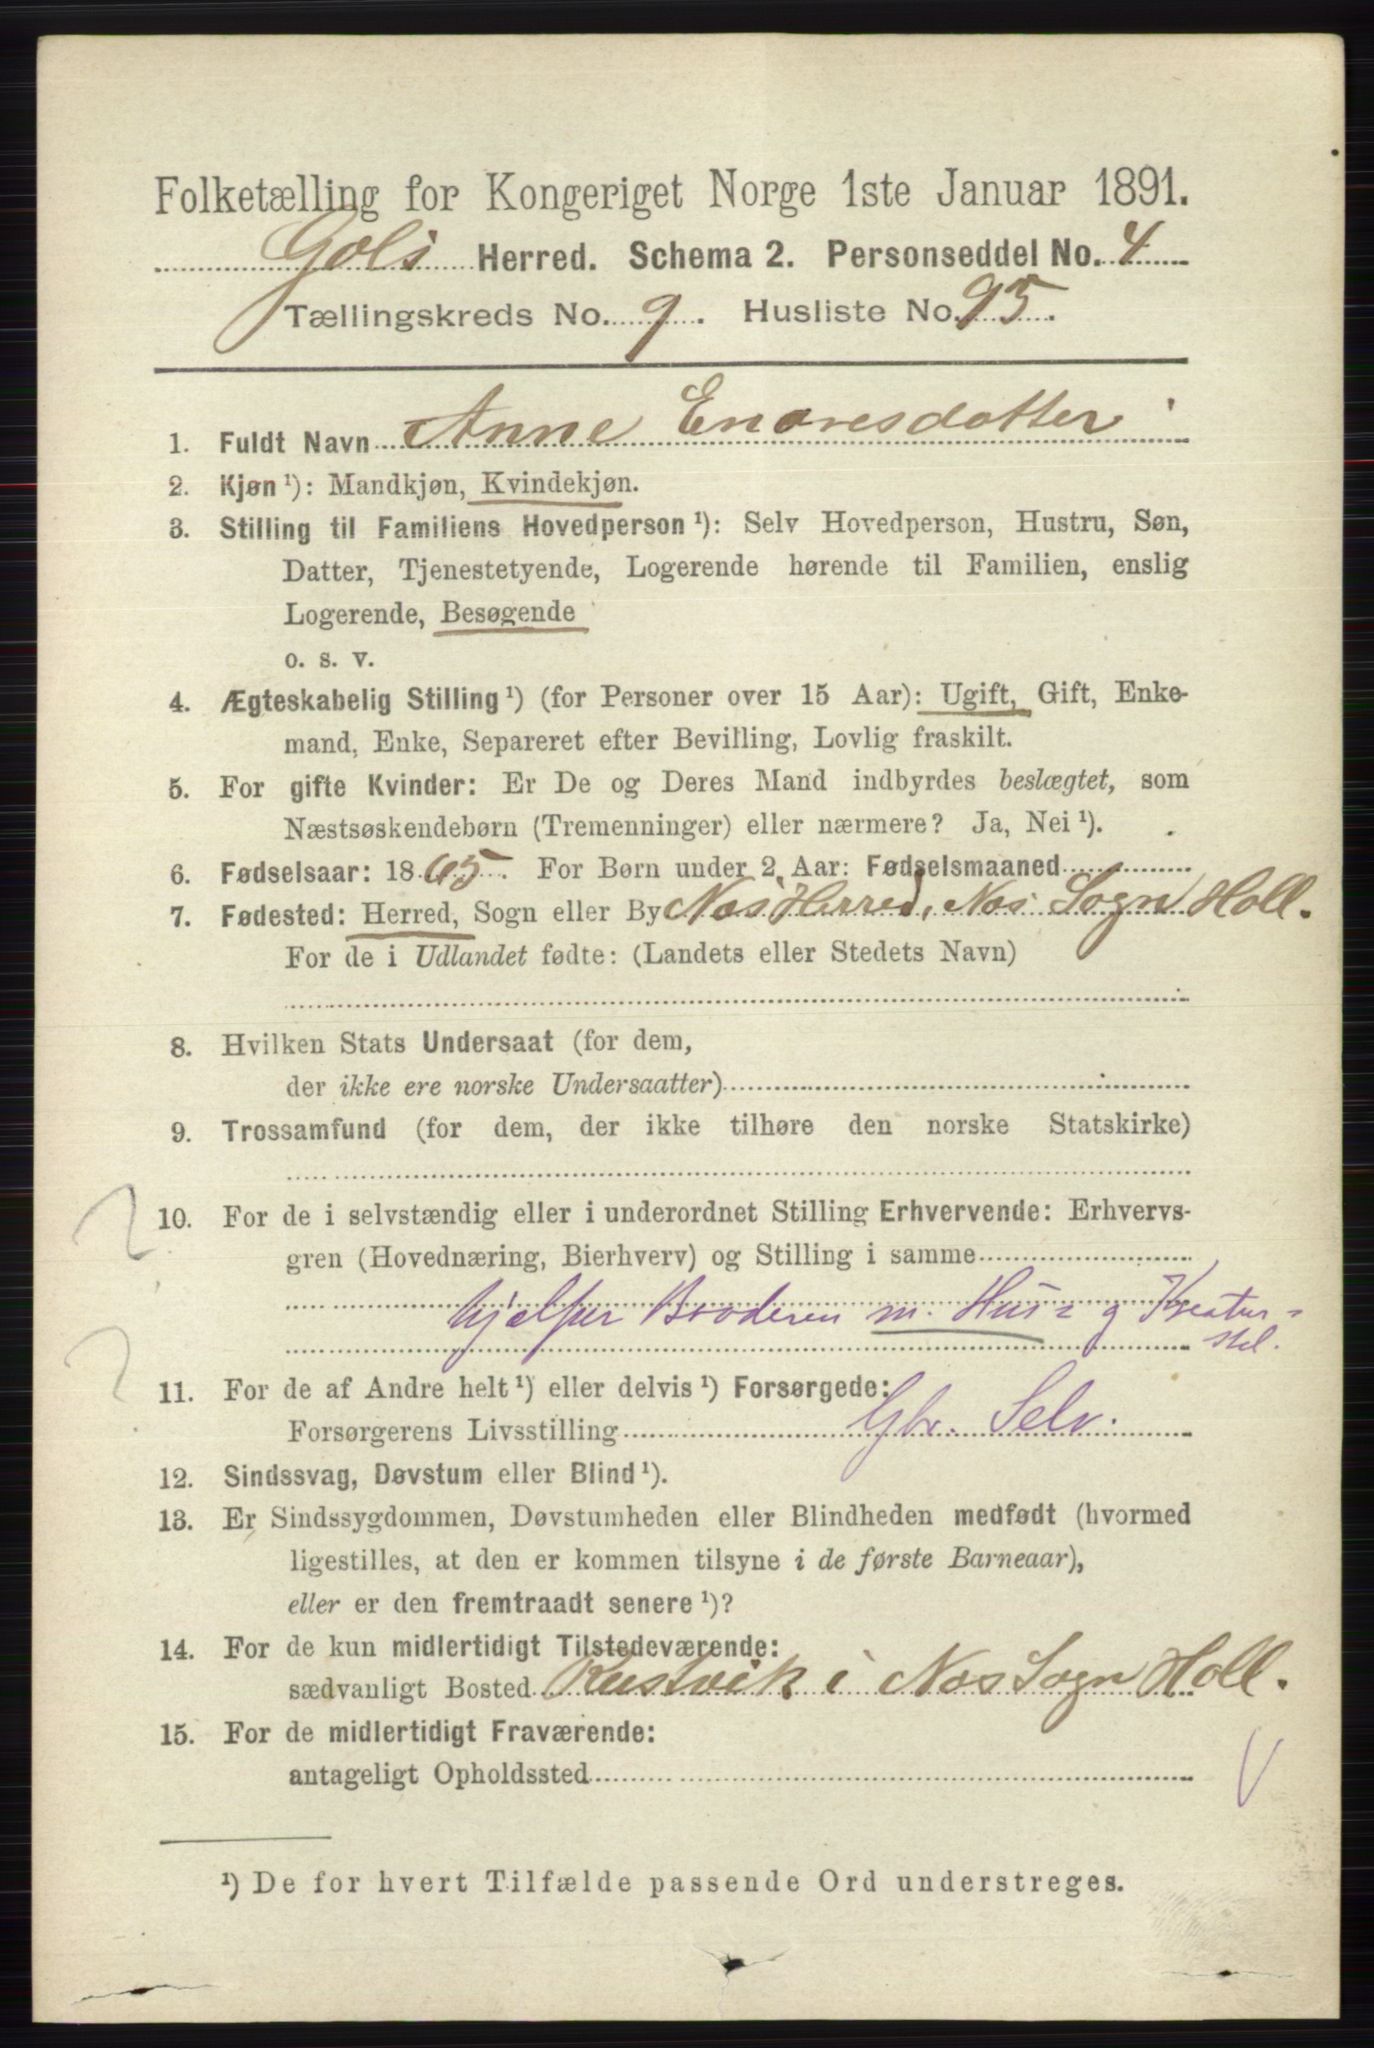 Folketælling for Kongeriget Norge 1ste Januar 1891.
Gols Herred. Schema 2. Personseddel No. 4
Tællingskreds No. 9. Husliste No. 95.
1. Fuldt Navn Anne Endresdatter
2. Kjøn ¹): Mandkjøn, Kvindekjøn.
3. Stilling til Familiens Hovedperson ¹): Selv Hovedperson, Hustru, Søn,
Datter, Tjenestetyende, Logerende hørende til Familien, enslig
Logerende, Besøgende
o. s. v.
4. Ægteskabelig Stilling ¹) (for Personer over 15 Aar): Ugift, Gift, Enke-
mand, Enke, Separeret efter Bevilling, Lovlig fraskilt.
5. For gifte Kvinder: Er De og Deres Mand indbyrdes beslægtet, som
Næstsøskendebørn (Tremenninger) eller nærmere? Ja, Nei ¹).
6. Fødselsaar: 1865. For Børn under 2 Aar: Fødselsmaaned
7. Fødested: Herred, Sogn eller By Nes Herred, Nes Sogn Holl.
For de i Udlandet fødte: (Landets eller Stedets Navn)
8. Hvilken Stats Undersaat (for dem,
der ikke ere norske Undersaatter)
9. Trossamfund (for dem, der ikke tilhøre den norske Statskirke)
10. For de i selvstændig eller i underordnet Stilling Erhvervende: Erhvervs-
gren (Hovednæring, Bierhverv) og Stilling i samme
hjelper Broderen m. Hus= og Kreatur=
stel.
11. For de af Andre helt ¹) eller delvis ¹) Forsørgede:
Forsørgerens Livsstilling Gbr. Selv.
12. Sindssvag, Døvstum eller Blind ¹).
13. Er Sindssygdommen, Døvstumheden eller Blindheden medfødt (hvormed
ligestilles, at den er kommen tilsyne i de første Barneaar),
eller er den fremtraadt senere ¹)?
14. For de kun midlertidigt Tilstedeværende:
sædvanligt Bosted Rustvik i Nes Sogn Holl.
15. For de midlertidigt Fraværende:
antageligt Opholdssted
¹) De for hvert Tilfælde passende Ord understreges.